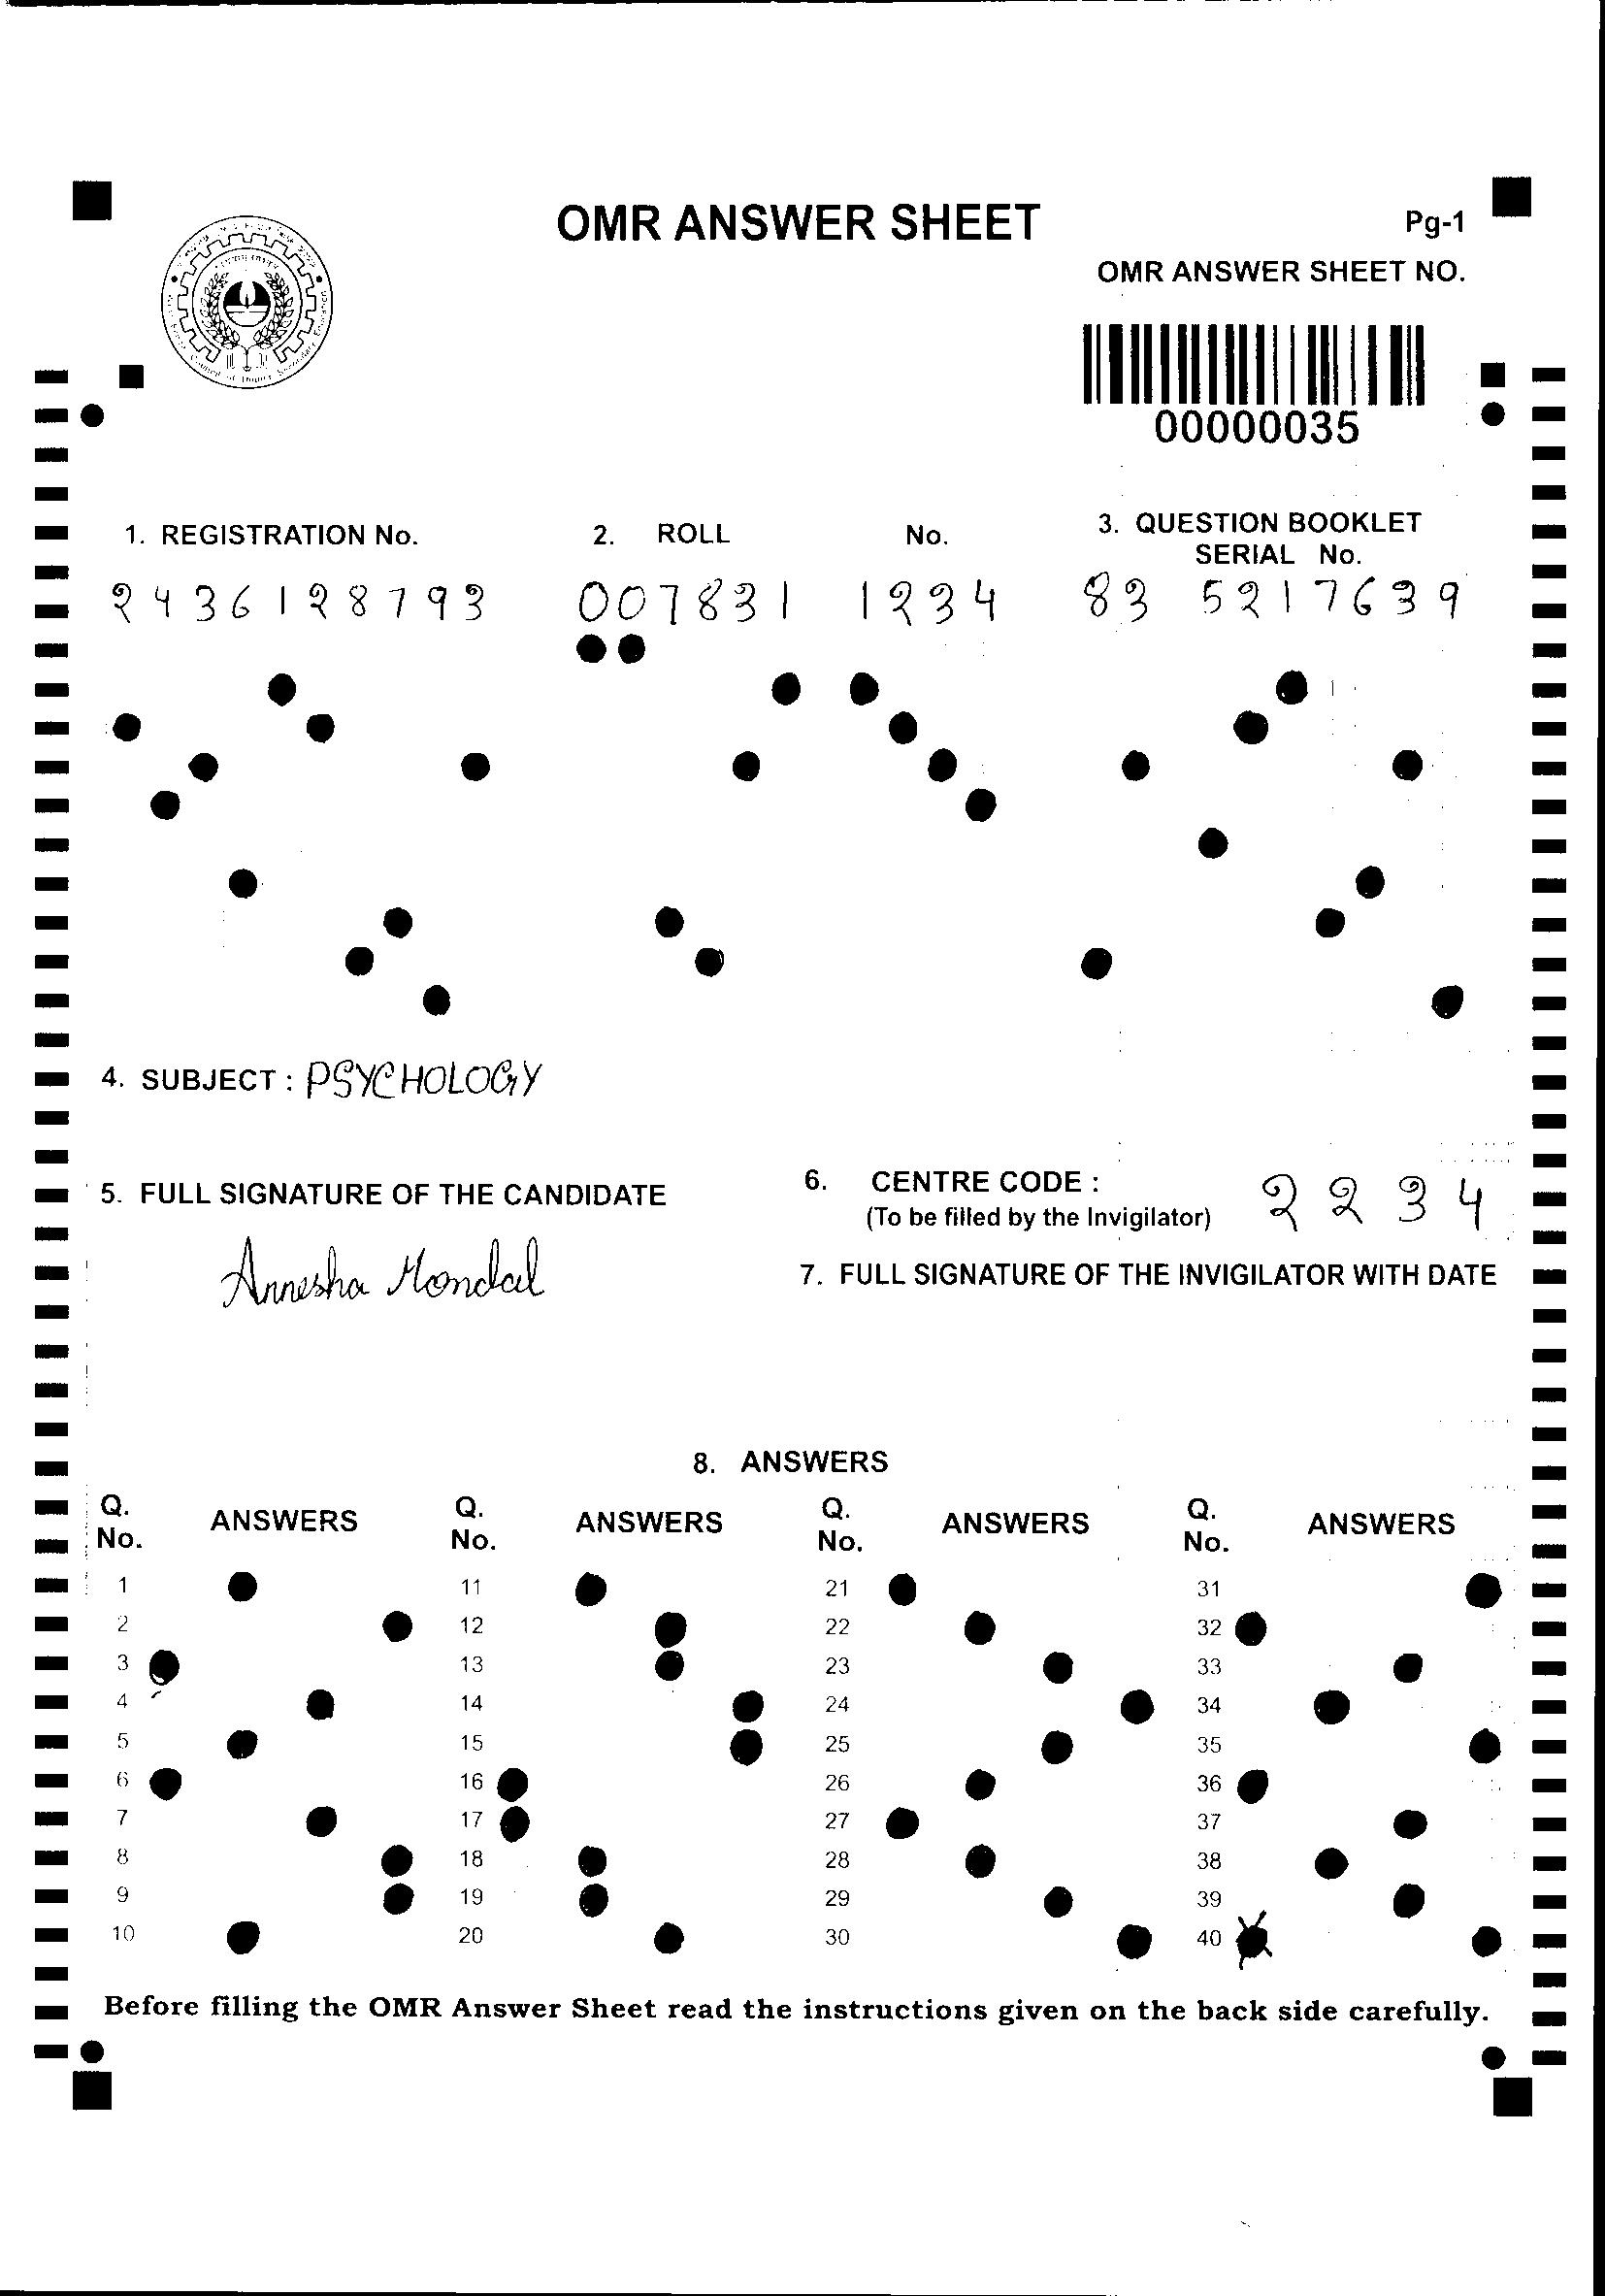 OMR ANSWER SHEET
Pg-1
OMR ANSWER SHEET NO.
00000035
1. REGISTRATION No.
2. ROLL No.
3. QUESTION BOOKLET
SERIAL No.
2436128793 007831 1234 83 5217639
4. SUBJECT : PSYCHOLOGY
5. FULL SIGNATURE OF THE CANDIDATE
6. CENTRE CODE : 2234
(To be filled by the Invigilator)
Annesha Mondal
7. FULL SIGNATURE OF THE INVIGILATOR WITH DATE
8. ANSWERS
Q. No. ANSWERS Q. No. ANSWERS Q. No. ANSWERS Q. No. ANSWERS
1 11 21 31
2 12 22 32
3 13 23 33
4 14 24 34
5 15 25 35
6 16 26 36
7 17 27 37
8 18 28 38
9 19 29 39
10 20 30 40
Before filling the OMR Answer Sheet read the instructions given on the back side carefully.